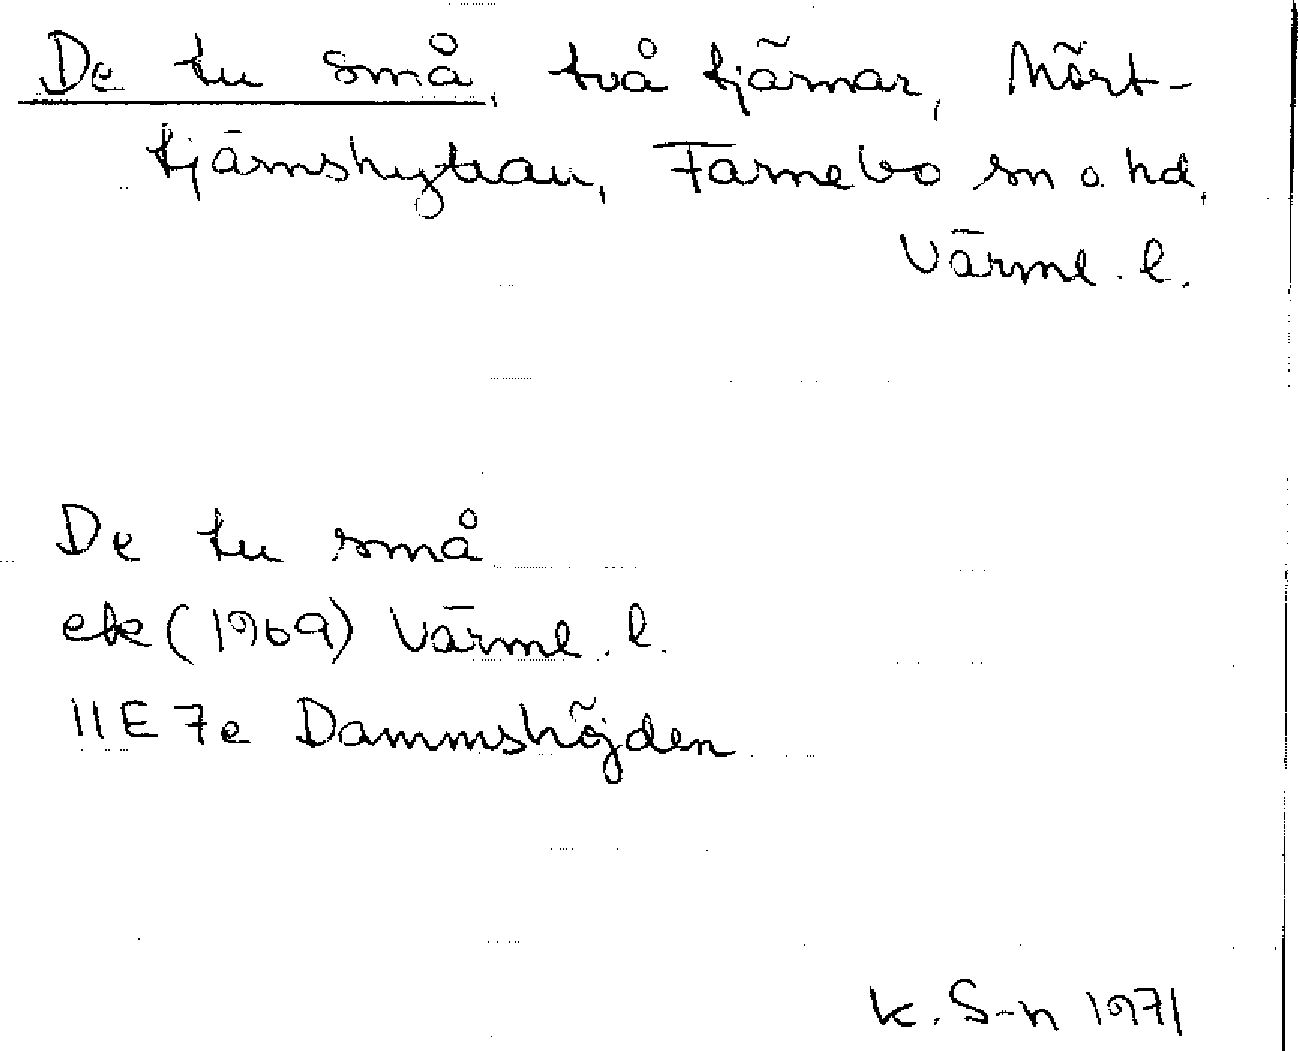 De tu små, två tjärnar, Mört-
tjärnshyttan, Färnebo sn o. hd,
Värml. l.
De tu små
ek (1969) Värml. l.
11E 7e Dammshöjden
K. S-n 1971